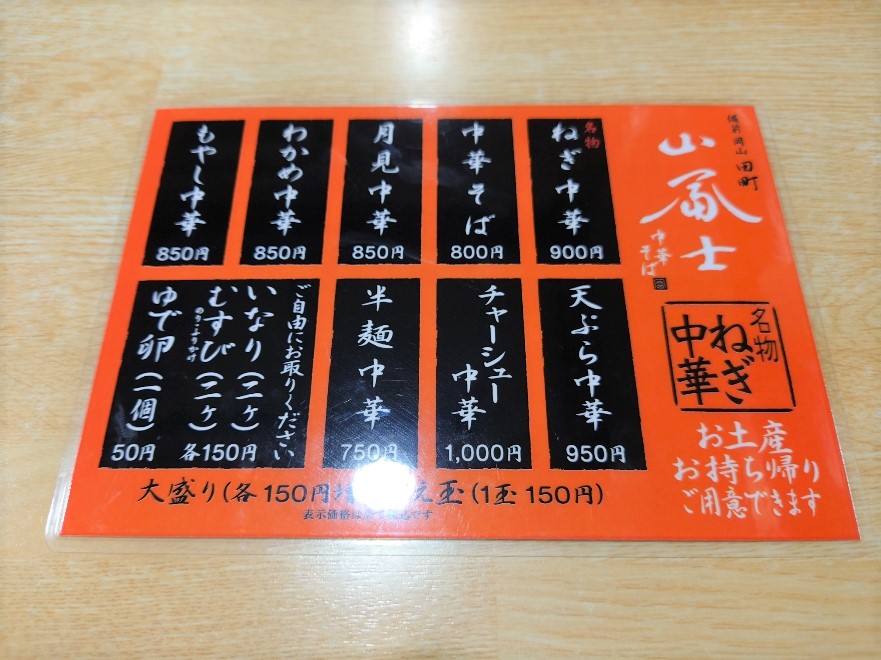 備前岡山 田町
山冨士
中華そば
名物
ねぎ中華
お土産
お持ち帰り
ご用意できます
名物
ねぎ中華
900円
中華そば
800円
月見中華
850円
わかめ中華
850円
もやし中華
850円
天ぷら中華
950円
チャーシュー中華
1,000円
半麺中華
750円
ご自由にお取りください
いなり(二ケ)
むすび(二ケ)
のり・ふりかけ
各150円
ゆで卵(一個)
50円
大盛り(各150円 玉(1玉 150円)
表示価格は です